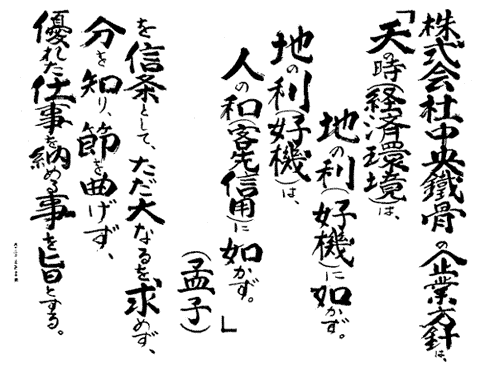 株式会社中央鐵骨の企業方針は、
「天の時(経済環境)は、
地の利(好機)に如かず。
地の利(好機)は、
人の和(客先信用)に如かず。」
(孟子)
を信条として、ただ大なるを求めず、
分を知り、節を曲げず、
優れた仕事を納める事を旨とする。